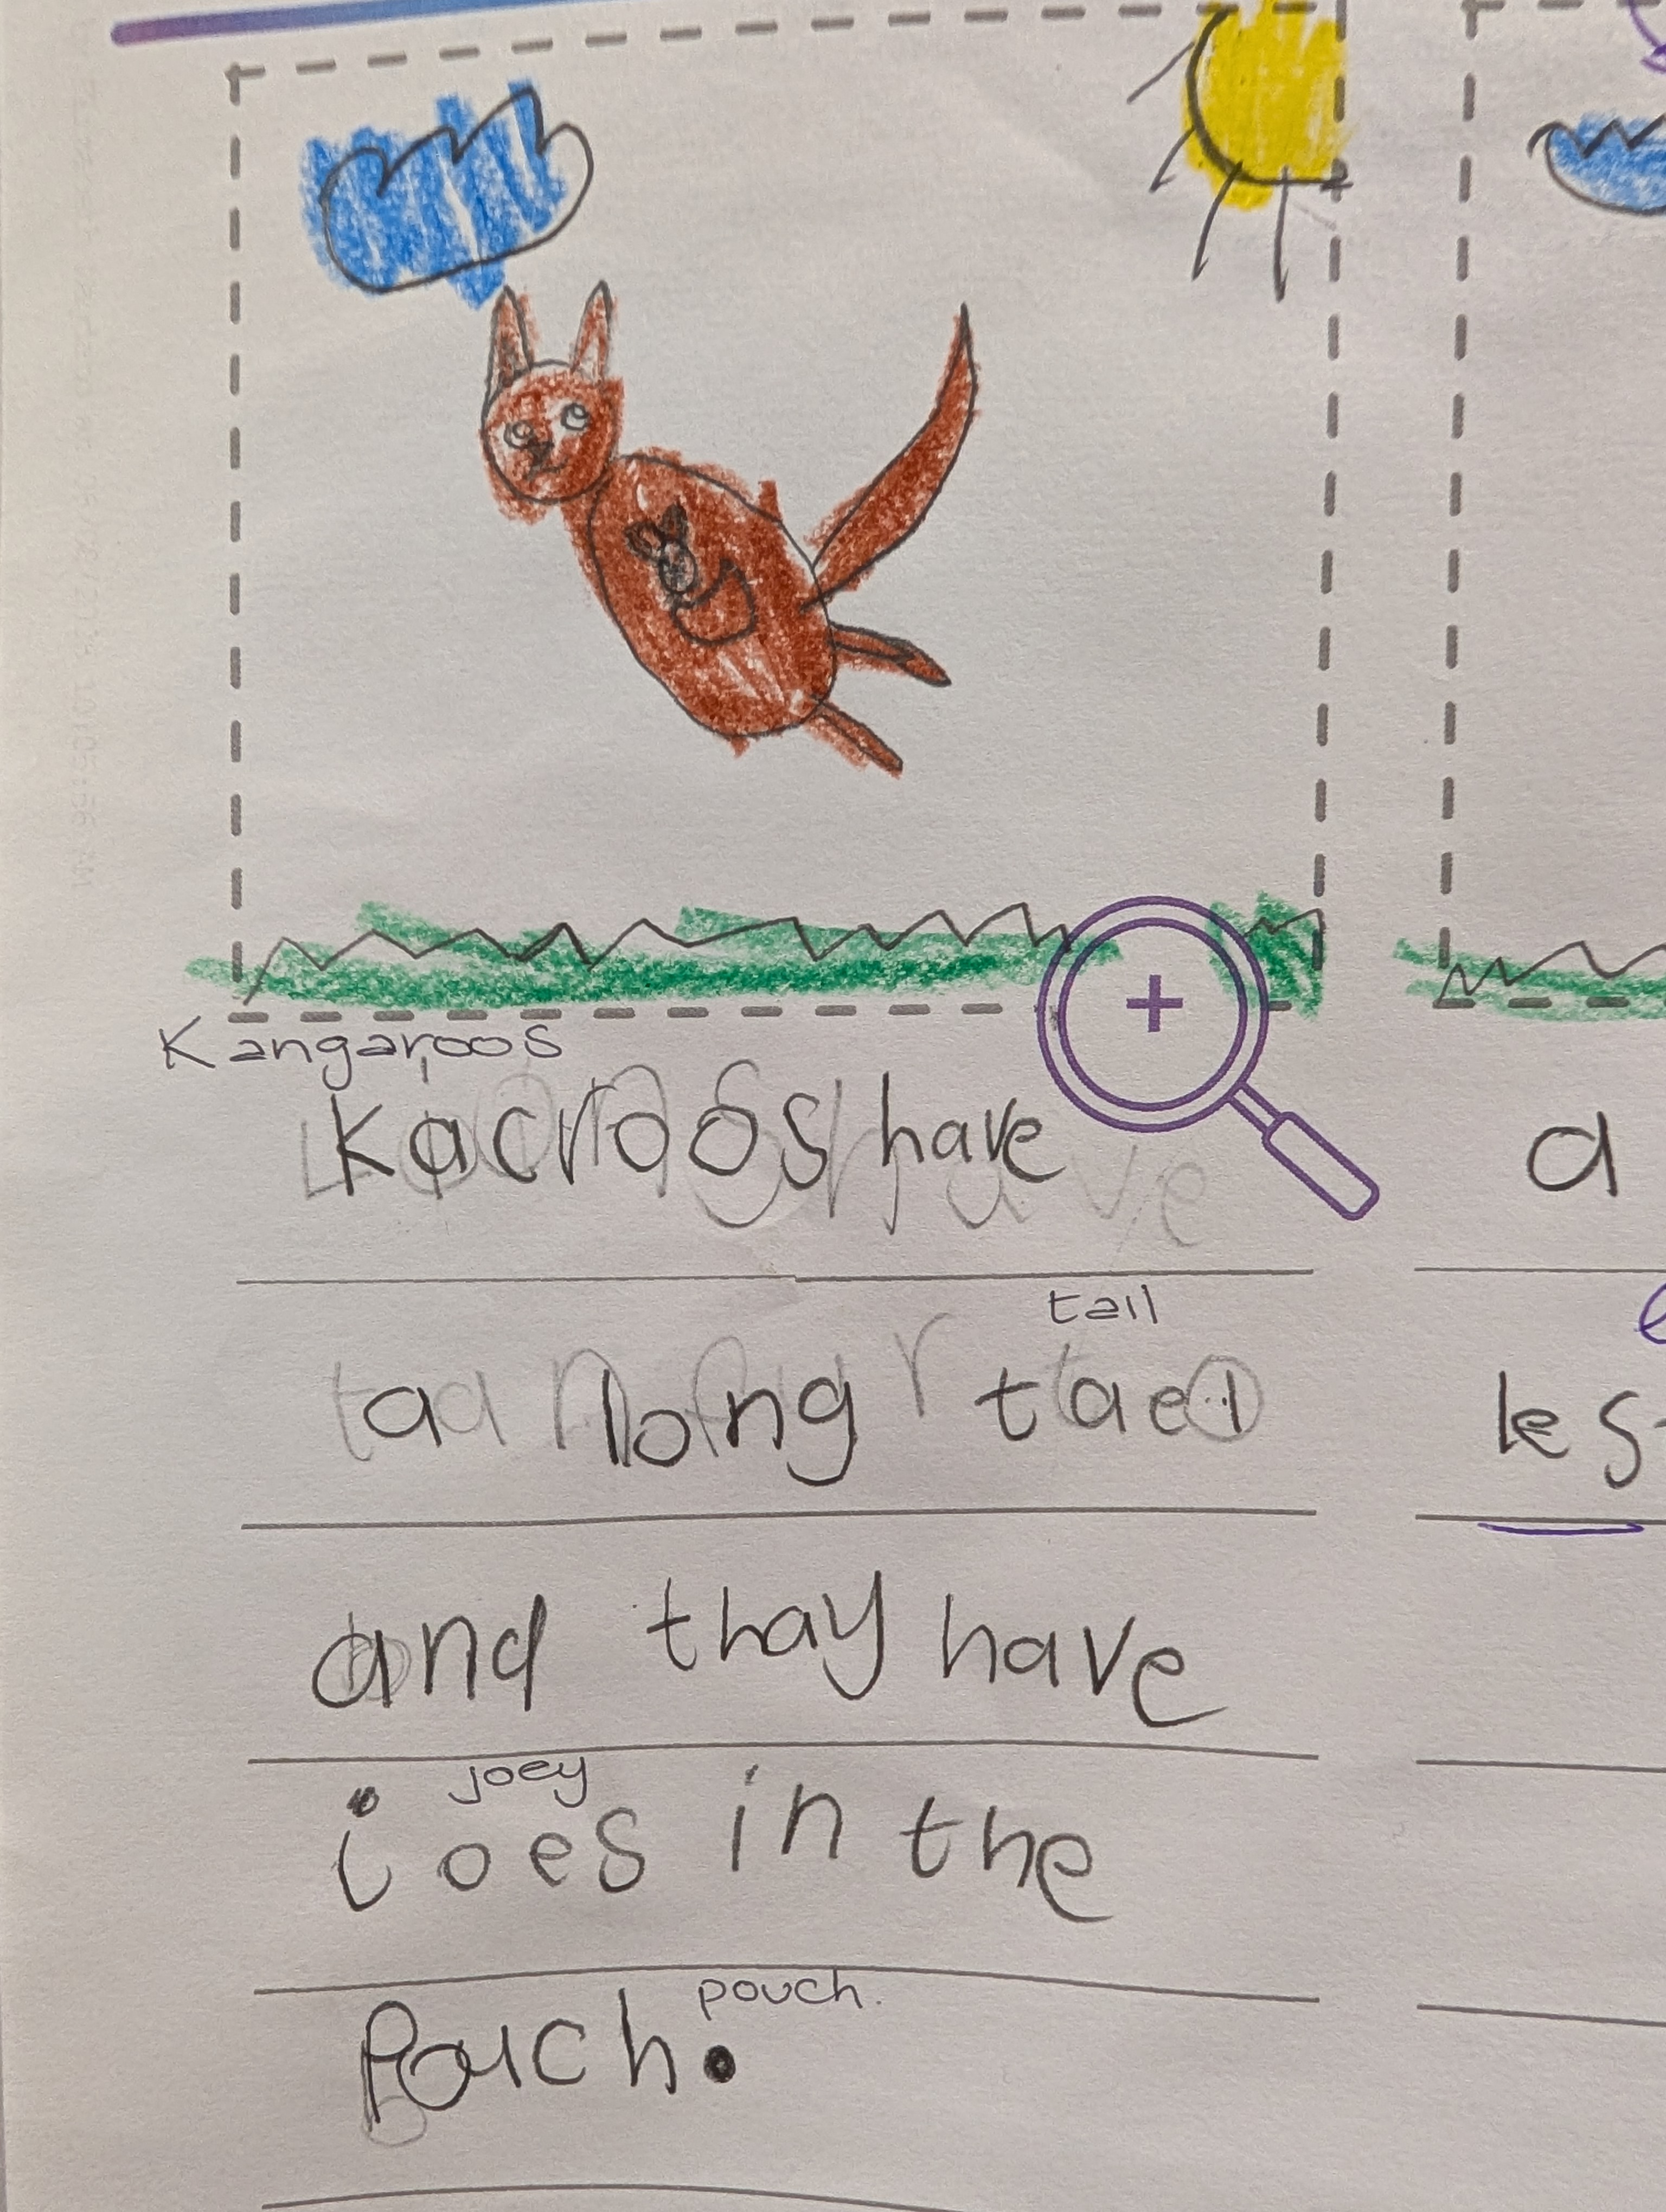 Kangaroos
kacroos have
a
tail
a long tael
les
and thay have
joey
ioes in the
pouch.
Pouch.